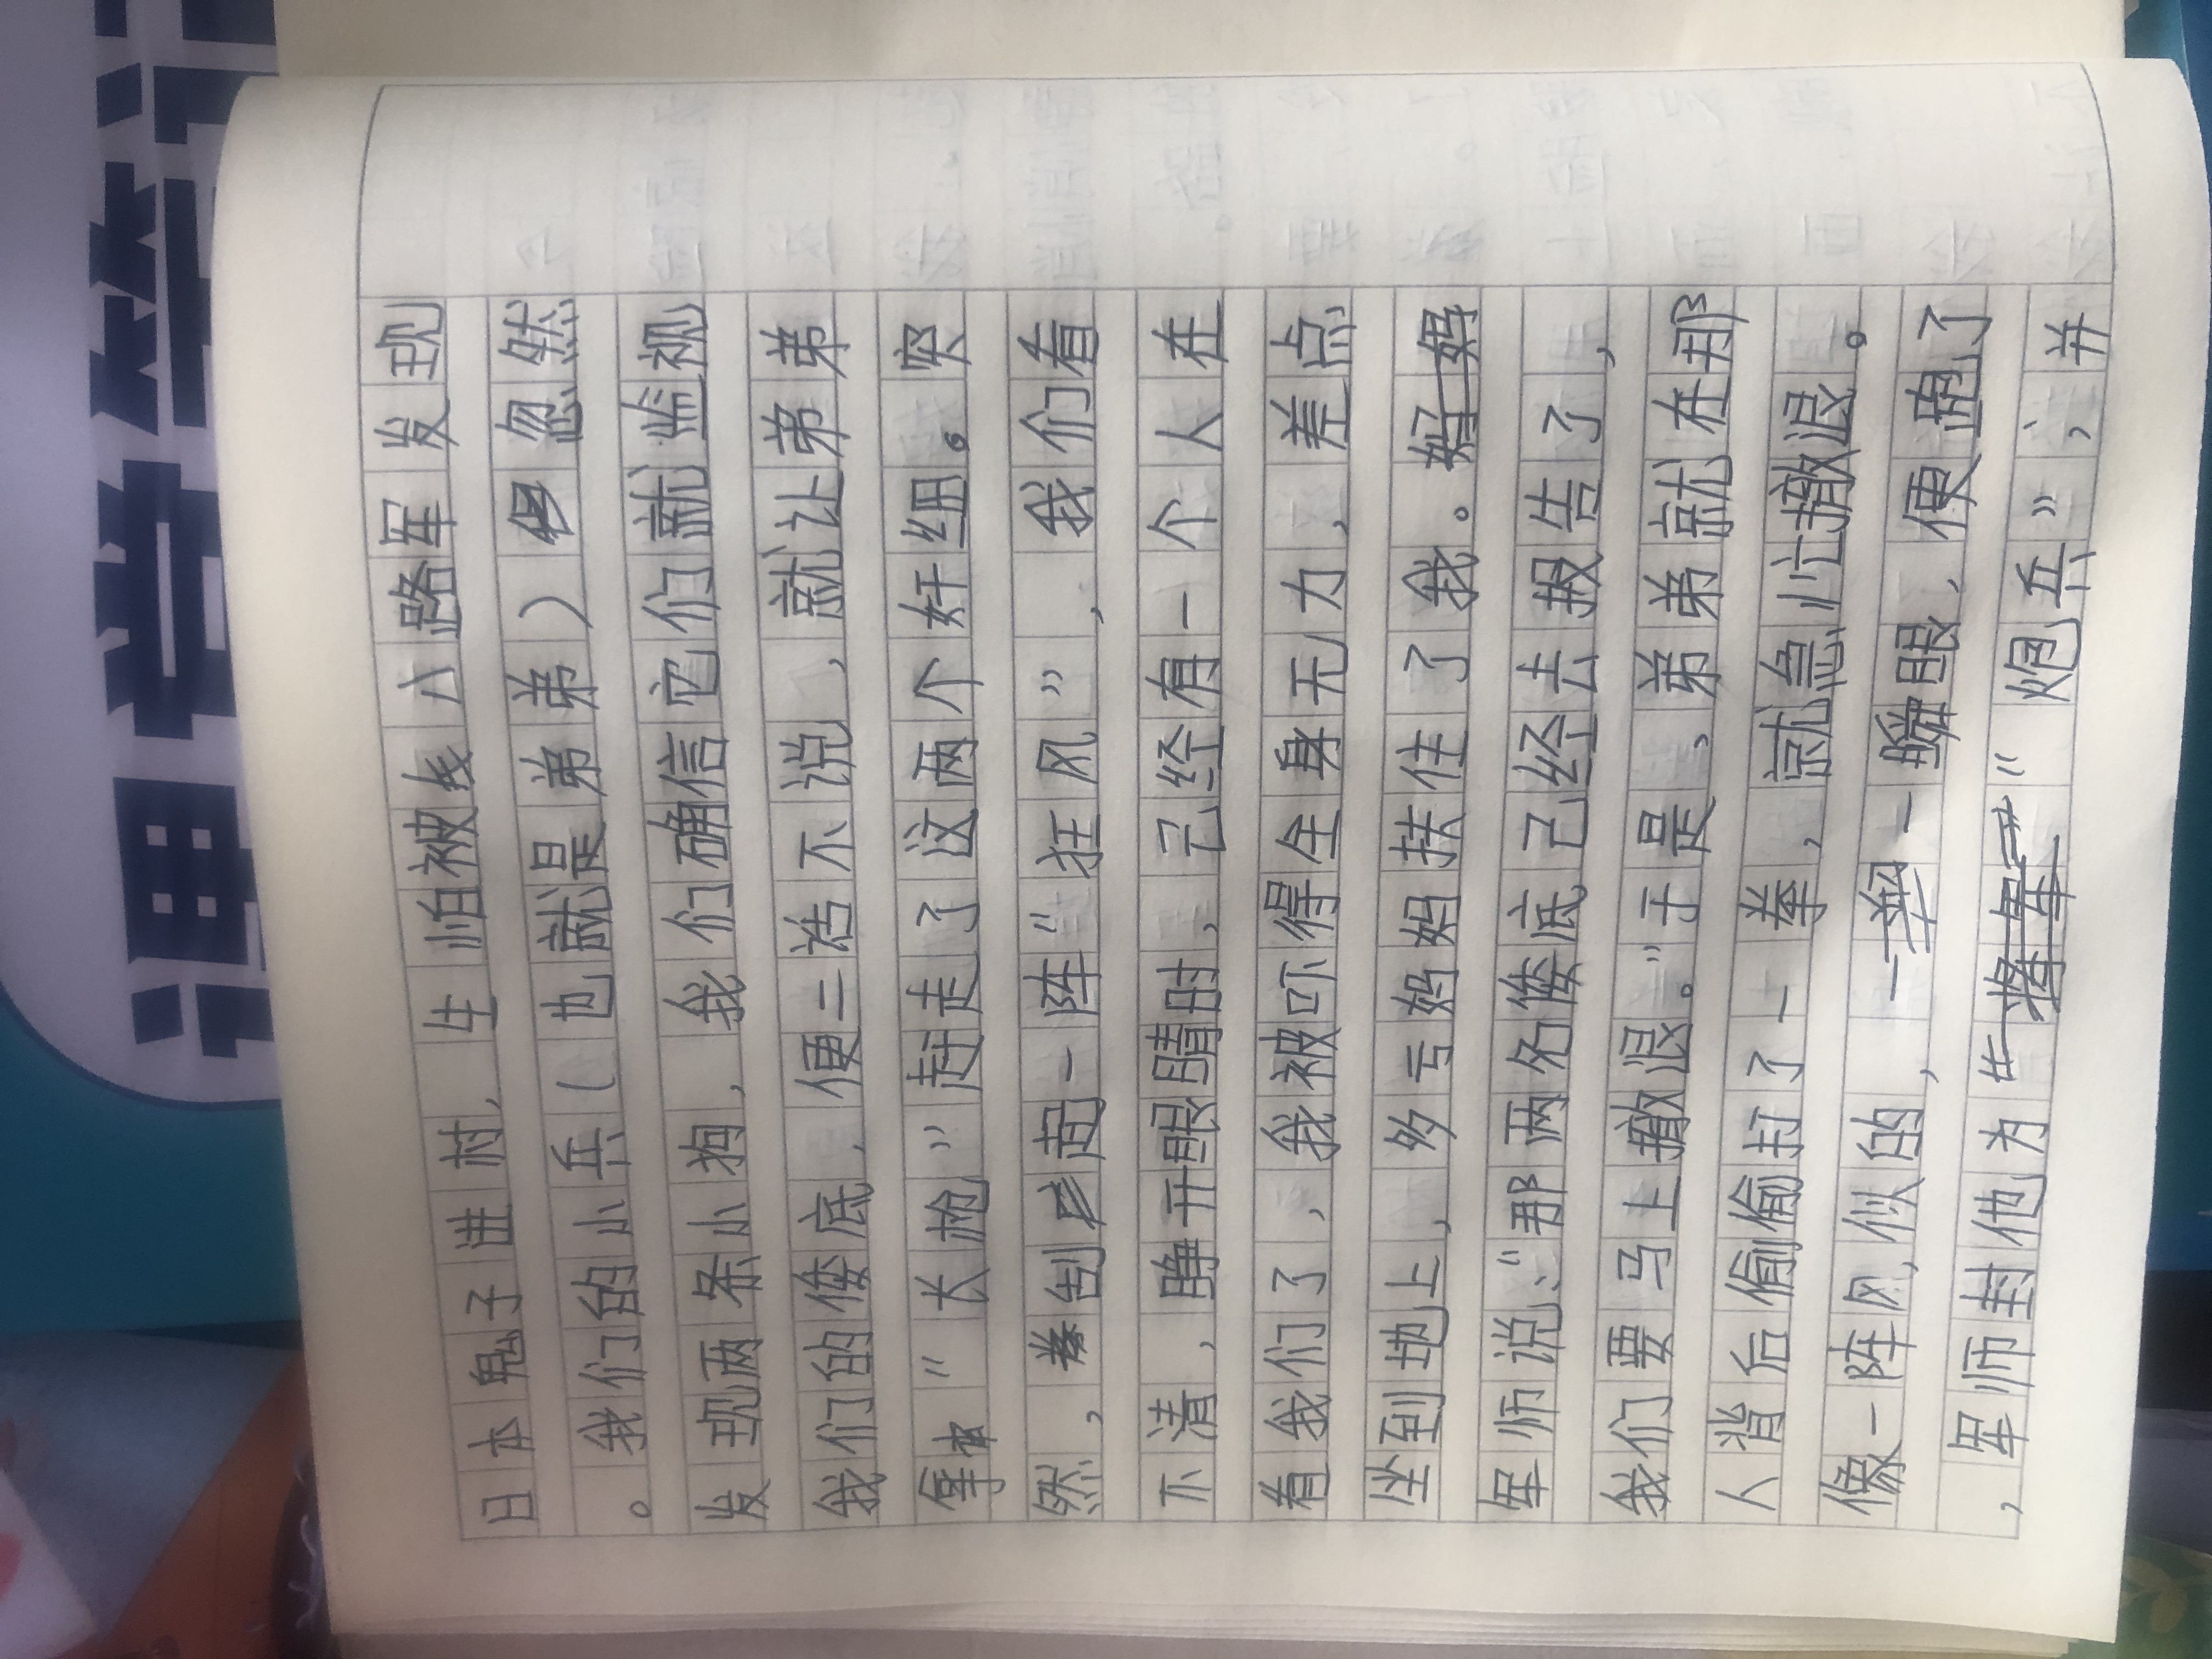 日本鬼子进村，生怕被线八路军发现
。我们的小兵（也就是弟弟）忽然
发现两条小狗，我们确信它们就监视
我们的偻底，便二话不说，就让弟弟
拿"长枪"赶走了这两个奸细。突
然，刮起一阵"狂风"，我们看
不清，睁开眼睛时，已经有一个人在
看我们了，我被吓得全身无力，差点
坐到地上，多亏妈妈扶住了我。
军师说："那两名偻底已经去报告了，
我们要马上撤退。"于是，弟弟就在那
人背后偷偷打了一拳，就急忙撤退。
像一阵风似的，一瞬眼，便跑了
，军师封他为"炮兵"，并